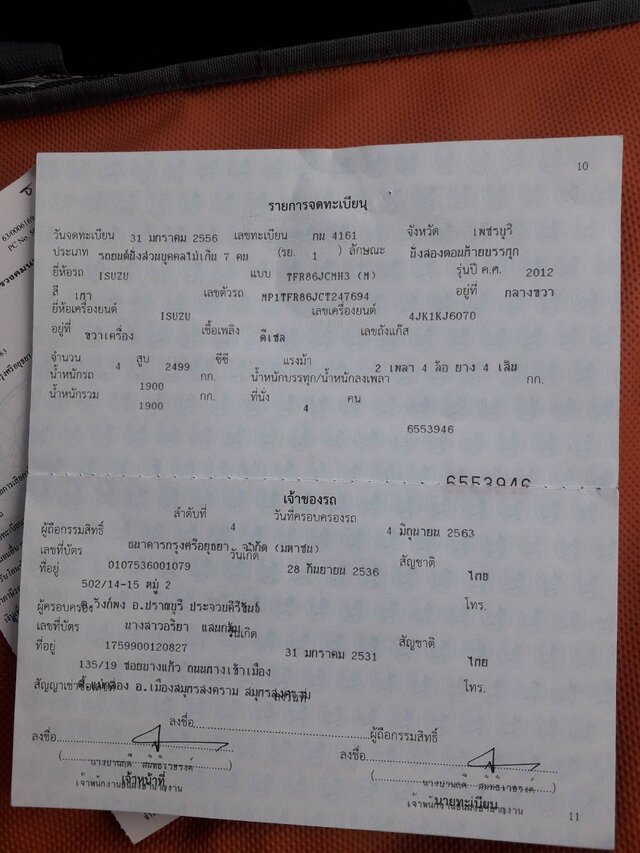 10
รายการจดทะเบียน
วันจดทะเบียน 31 มกราคม 2556 เลขทะเบียน กน 4161 จังหวัด เพชรบุรี
ประเภท รถยนต์นั่งส่วนบุคคลไม่เกิน 7 คน (รย. 1 ) ลักษณะ นั่งสองตอนท้ายบรรทุก
ยี่ห้อรถ ISUZU แบบ TFR86JCMH3 (M) รุ่นปี ค.ศ. 2012
สี เทา เลขตัวรถ MP1TFR86JCT247694 อยู่ที่ กลางขวา
ยี่ห้อเครื่องยนต์ ISUZU เลขเครื่องยนต์ 4JK1KJ6070
อยู่ที่ ขวาเครื่อง เชื้อเพลิง ดีเซล เลขถังแก๊ส
จำนวน 4 สูบ 2499 ซีซี แรงม้า 2 เพลา 4 ล้อ ยาง 4 เส้น
น้ำหนักรถ 1900 กก. น้ำหนักบรรทุก/น้ำหนักลงเพลา กก.
น้ำหนักรวม 1900 กก. ที่นั่ง 4 คน
6553946
6553946
เจ้าของรถ
ลำดับที่ 4 วันที่ครอบครองรถ 4 มิถุนายน 2563
ผู้ถือกรรมสิทธิ์ ธนาคารกรุงศรีอยุธยา จำกัด (มหาชน)
เลขที่บัตร 0107536001079 วันเกิด 28 กันยายน 2536 สัญชาติ ไทย
ที่อยู่ 502/14-15 หมู่ 2 โทร.
ต.วังก์พง อ.ปราณบุรี ประจวบคีรีขันธ์
ผู้ครอบครอง นางสาวอริยา
เลขที่บัตร 1759900120827 วันเกิด 31 มกราคม 2531 สัญชาติ ไทย
ที่อยู่ 135/19 ซอยบางแก้ว ถนนทางเข้าเมือง โทร.
ต.แม่กลอง อ.เมืองสมุทรสงคราม สมุทรสงคราม
สัญญาเช่าซื้อเลขที่ ลงวันที่
ลงชื่อ ผู้ถือกรรมสิทธิ์
ลงชื่อ ลงชื่อ
เจ้าหน้าที่ นายทะเบียน
เจ้าพนักงานขนส่งชำนาญงาน เจ้าพนักงานขนส่งชำนาญงาน
11